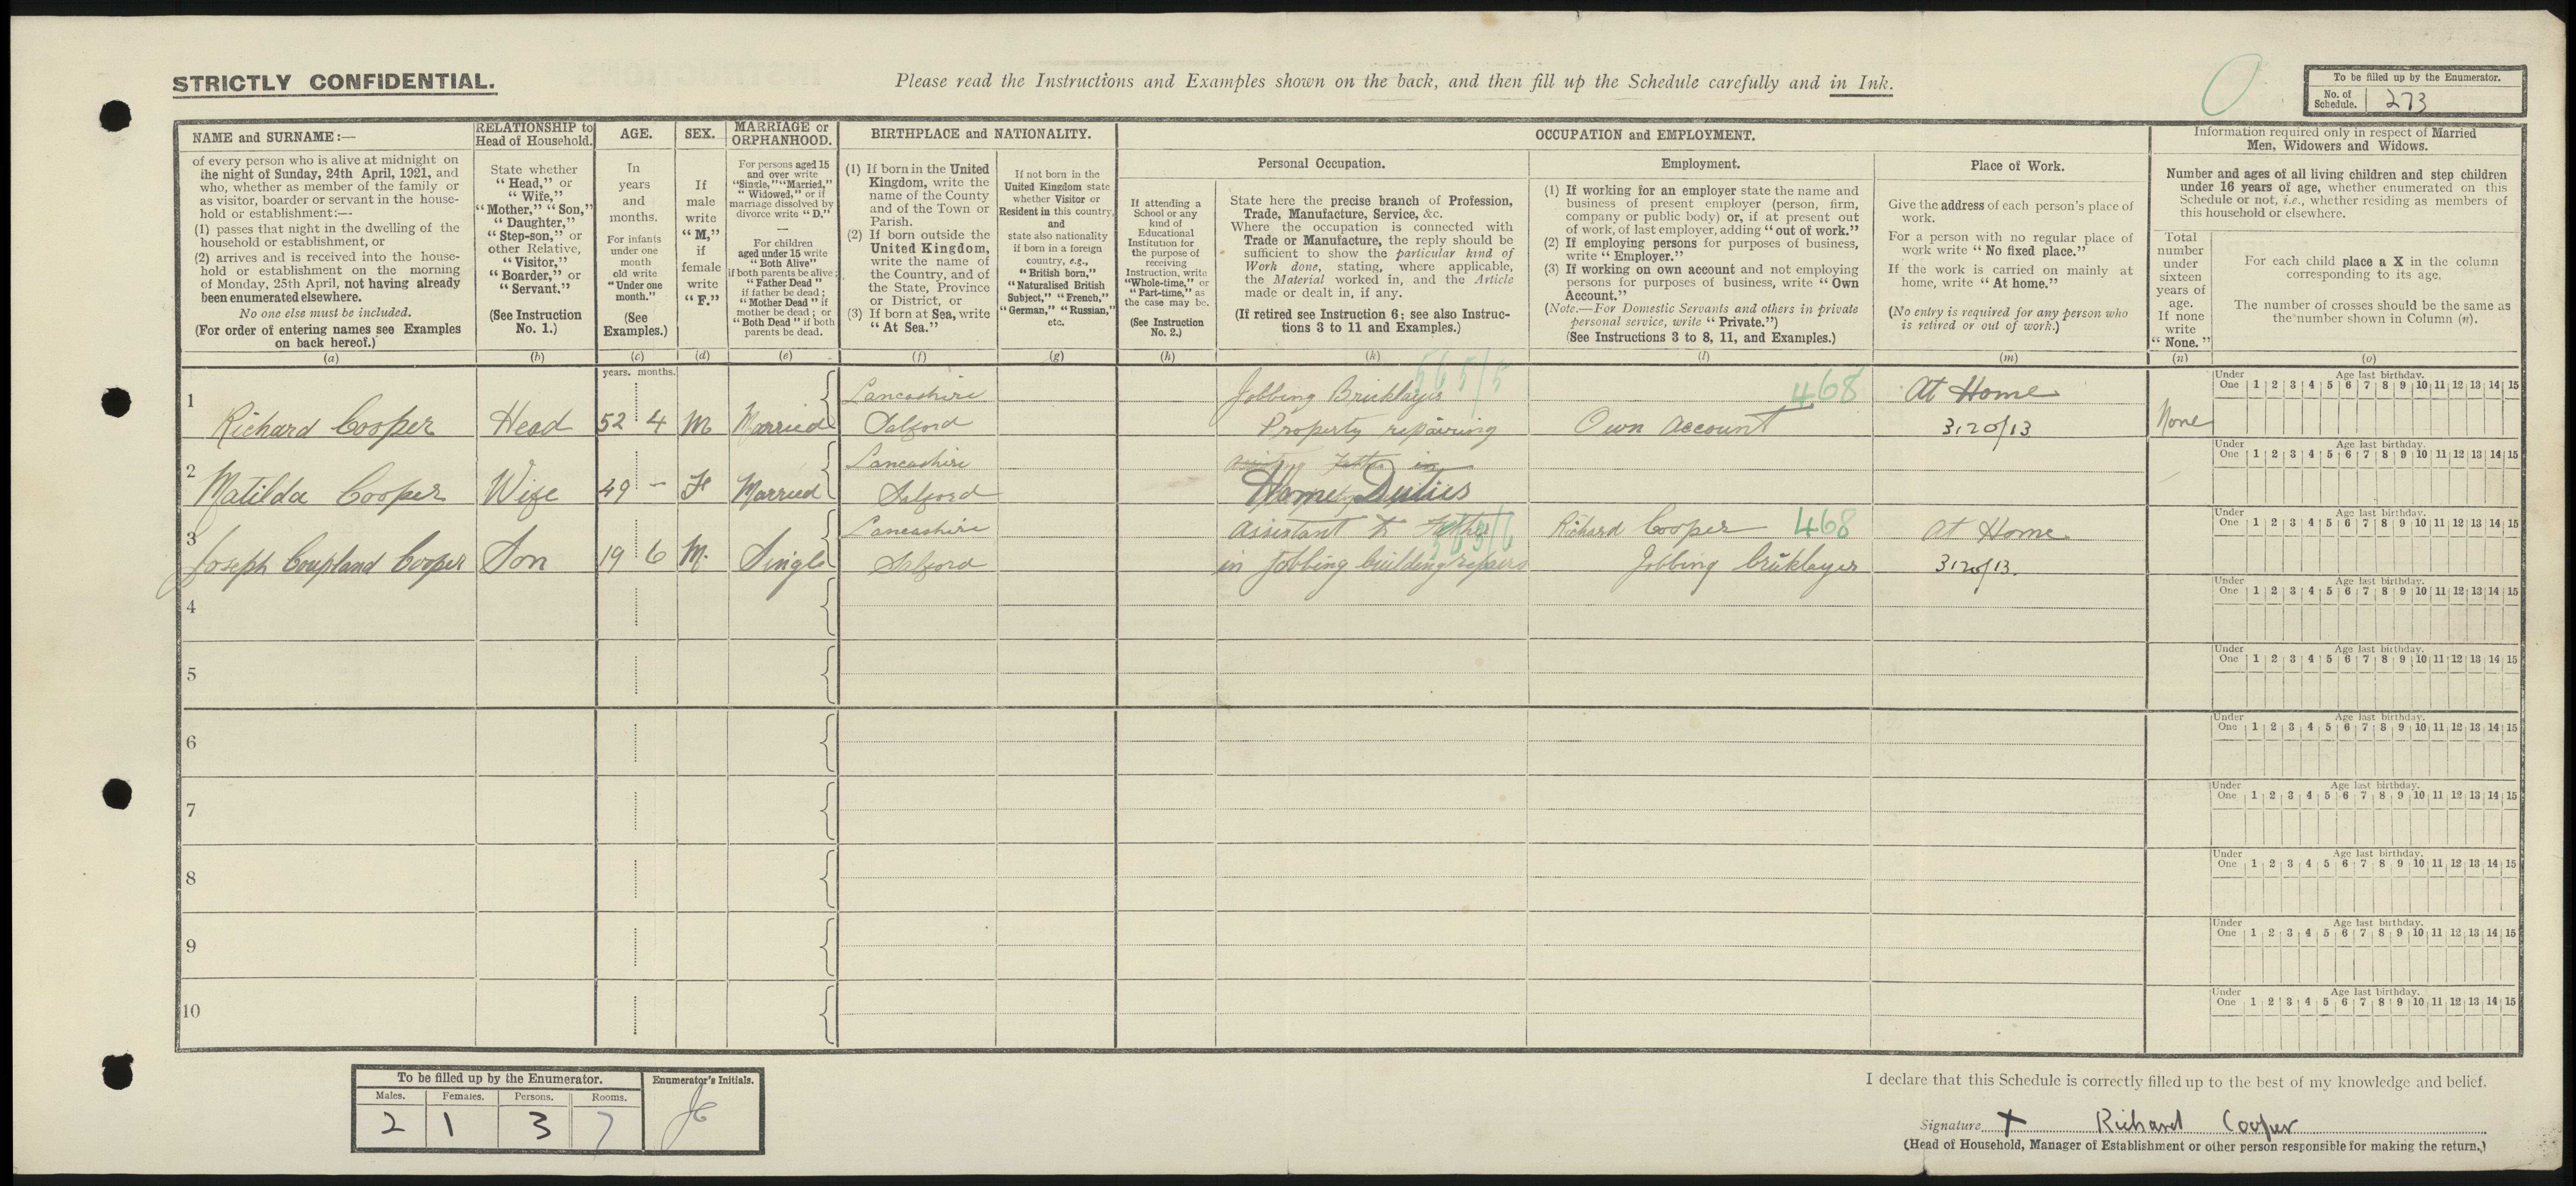 STRICTLY CONFIDENTIAL.
Please read the Instructions and Examples shown on the back, and then fill up the Schedule carefully and in Ink.
To be filled up by the Enumerator.
No. of Schedule. 273
NAME and SURNAME:—
of every person who is alive at midnight on
the night of Sunday, 24th April, 1921, and
who, whether as member of the family or
as visitor, boarder or servant in the house-
hold or establishment:—
(1) passes that night in the dwelling of the
household or establishment, or
(2) arrives and is received into the house-
hold or establishment on the morning
of Monday, 25th April, not having already
been enumerated elsewhere.
No one else must be included.
(For order of entering names see Examples
on back hereof.)
(a)
RELATIONSHIP to
Head of Household.
State whether
"Head," or
"Wife,"
"Mother," "Son,"
"Daughter,"
"Step-son," or
other Relative,
"Visitor,"
"Boarder," or
"Servant."
(See Instruction
No. 1.)
(b)
AGE.
In
years
and
months.
For infants
under one
month
old write
"Under one
month."
(See
Examples.)
(c)
SEX.
If
male
write
"M,"
if
female
write
"F."
(d)
MARRIAGE or
ORPHANHOOD.
For persons aged 15
and over write
"Single," "Married,"
"Widowed," or if
marriage dissolved by
divorce write "D."
—
For children
aged under 15 write
"Both Alive"
if both parents be alive;
"Father Dead"
if father be dead;
"Mother Dead" if
mother be dead; or
"Both Dead" if both
parents be dead.
(e)
BIRTHPLACE and NATIONALITY.
(1) If born in the United
Kingdom, write the
name of the County
and of the Town or
Parish.
(2) If born outside the
United Kingdom,
write the name of
the Country, and of
the State, Province
or District, or
(3) If born at Sea, write
"At Sea."
(f)
If not born in the
United Kingdom state
whether Visitor or
Resident in this country,
and
state also nationality
if born in a foreign
country, e.g.,
"British born,"
"Naturalised British
Subject," "French,"
"German," "Russian,"
etc.
(g)
OCCUPATION and EMPLOYMENT.
If attending a
School or any
kind of
Educational
Institution for
the purpose of
receiving
Instruction, write
"Whole-time," or
"Part-time," as
the case may be.
(See Instruction
No. 2.)
(h)
Personal Occupation.
State here the precise branch of Profession,
Trade, Manufacture, Service, &c.
Where the occupation is connected with
Trade or Manufacture, the reply should be
sufficient to show the particular kind of
Work done, stating, where applicable,
the Material worked in, and the Article
made or dealt in, if any.
(If retired see Instruction 6; see also Instruc-
tions 3 to 11 and Examples.)
(k)
Employment.
(1) If working for an employer state the name and
business of present employer (person, firm,
company or public body) or, if at present out
of work, of last employer, adding "out of work."
(2) If employing persons for purposes of business,
write "Employer."
(3) If working on own account and not employing
persons for purposes of business, write "Own
Account."
(Note.—For Domestic Servants and others in private
personal service, write "Private.")
(See Instructions 3 to 8, 11, and Examples.)
(l)
Place of Work.
Give the address of each person's place of
work.
For a person with no regular place of
work write "No fixed place."
If the work is carried on mainly at
home, write "At home."
(No entry is required for any person who
is retired or out of work.)
(m)
Information required only in respect of Married
Men, Widowers and Widows.
Number and ages of all living children and step children
under 16 years of age, whether enumerated on this
Schedule or not, i.e., whether residing as members of
this household or elsewhere.
Total
number
under
sixteen
years of
age.
If none
write
"None."
(n)
For each child place a X in the column
corresponding to its age.
The number of crosses should be the same as
the number shown in Column (n).
(o)
years. months.
1 Richard Cooper Head 52 4 M Married Lancashire Salford
Jobbing Bricklayer 565/5
Property repairing
Own Account 468
At Home
3120/13
None
Under One Age last birthday. 1 2 3 4 5 6 7 8 9 10 11 12 13 14 15
2 Matilda Cooper Wife 49 – F Married Lancashire Salford
Home Duties
Under One Age last birthday. 1 2 3 4 5 6 7 8 9 10 11 12 13 14 15
3 Joseph Coupland Cooper Son 19 6 M. Single Lancashire Salford
Assistant to Father
in Jobbing building repairs
Richard Cooper 468
Jobbing bricklayer
At Home
3120/13.
Under One Age last birthday. 1 2 3 4 5 6 7 8 9 10 11 12 13 14 15
4
Under One Age last birthday. 1 2 3 4 5 6 7 8 9 10 11 12 13 14 15
5
Under One Age last birthday. 1 2 3 4 5 6 7 8 9 10 11 12 13 14 15
6
Under One Age last birthday. 1 2 3 4 5 6 7 8 9 10 11 12 13 14 15
7
Under One Age last birthday. 1 2 3 4 5 6 7 8 9 10 11 12 13 14 15
8
Under One Age last birthday. 1 2 3 4 5 6 7 8 9 10 11 12 13 14 15
9
Under One Age last birthday. 1 2 3 4 5 6 7 8 9 10 11 12 13 14 15
10
Under One Age last birthday. 1 2 3 4 5 6 7 8 9 10 11 12 13 14 15
To be filled up by the Enumerator.
Males. Females. Persons. Rooms.
2 1 3 7
Enumerator's Initials.
I declare that this Schedule is correctly filled up to the best of my knowledge and belief.
Signature X Richard Cooper
(Head of Household, Manager of Establishment or other person responsible for making the return.)